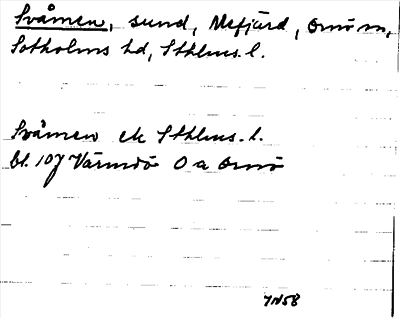 Svåmen, sund, Mefjärd, Ornö sn,
Sotholms hd, Sthlms. l.
Svåmen ek Sthlms. l.
bl. 107 Värmdö O a Ornö
7N58